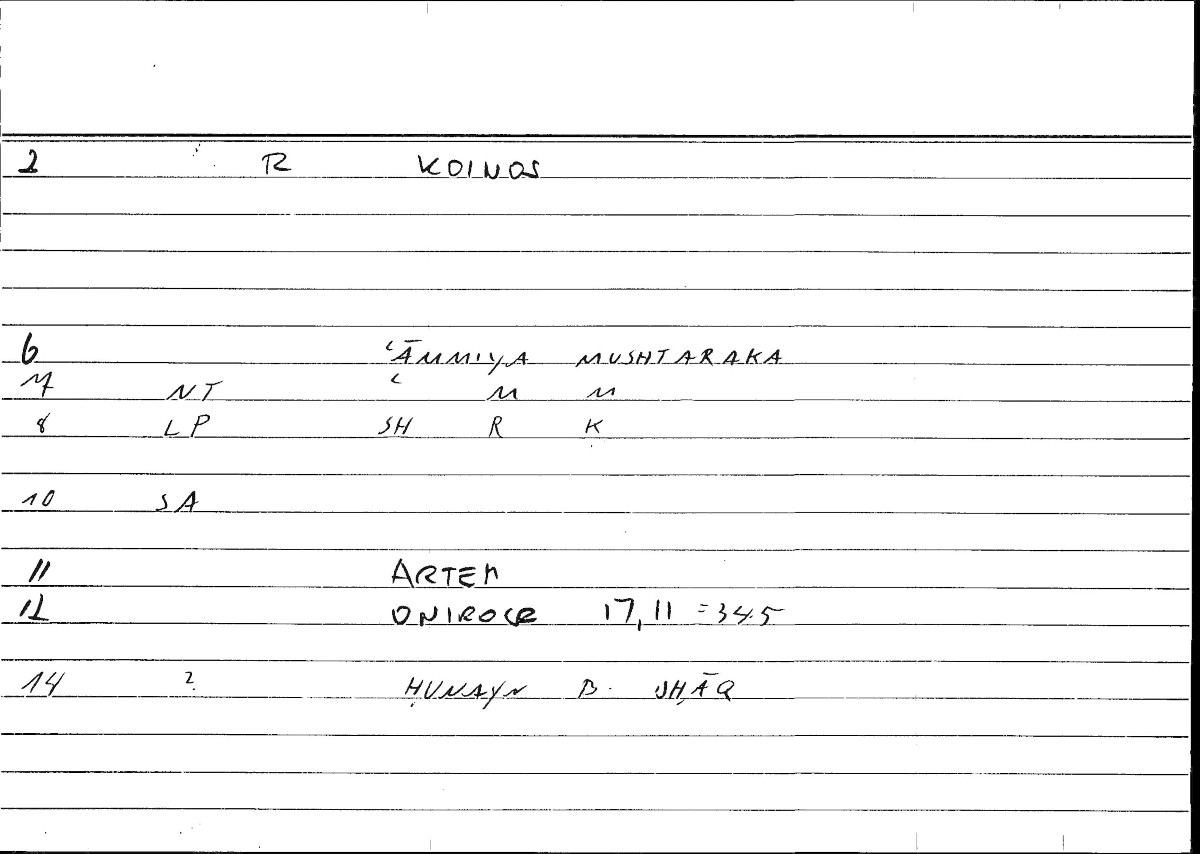 2 R KOINOS
6 ʿĀMMIYA MUSHTARAKA
7 NT ʿ M M
8 LP SH R K
10 SA
11 ARTEM
12 ONIROCR 17,11 =345
14 ? ḤUNAYN B. ISḤĀQ